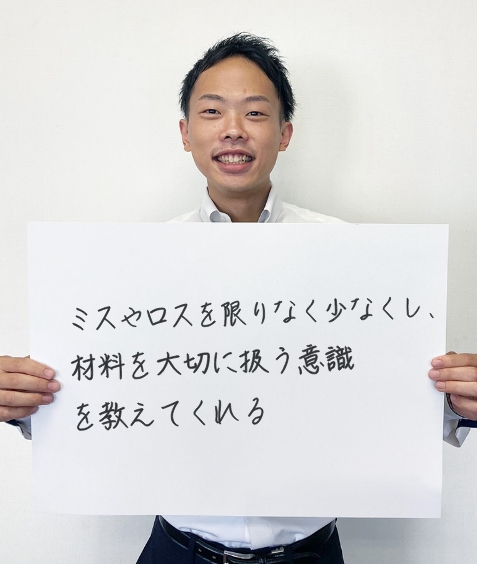 ミスやロスを限りなく少なくし、
材料を大切に扱う意識
を教えてくれる